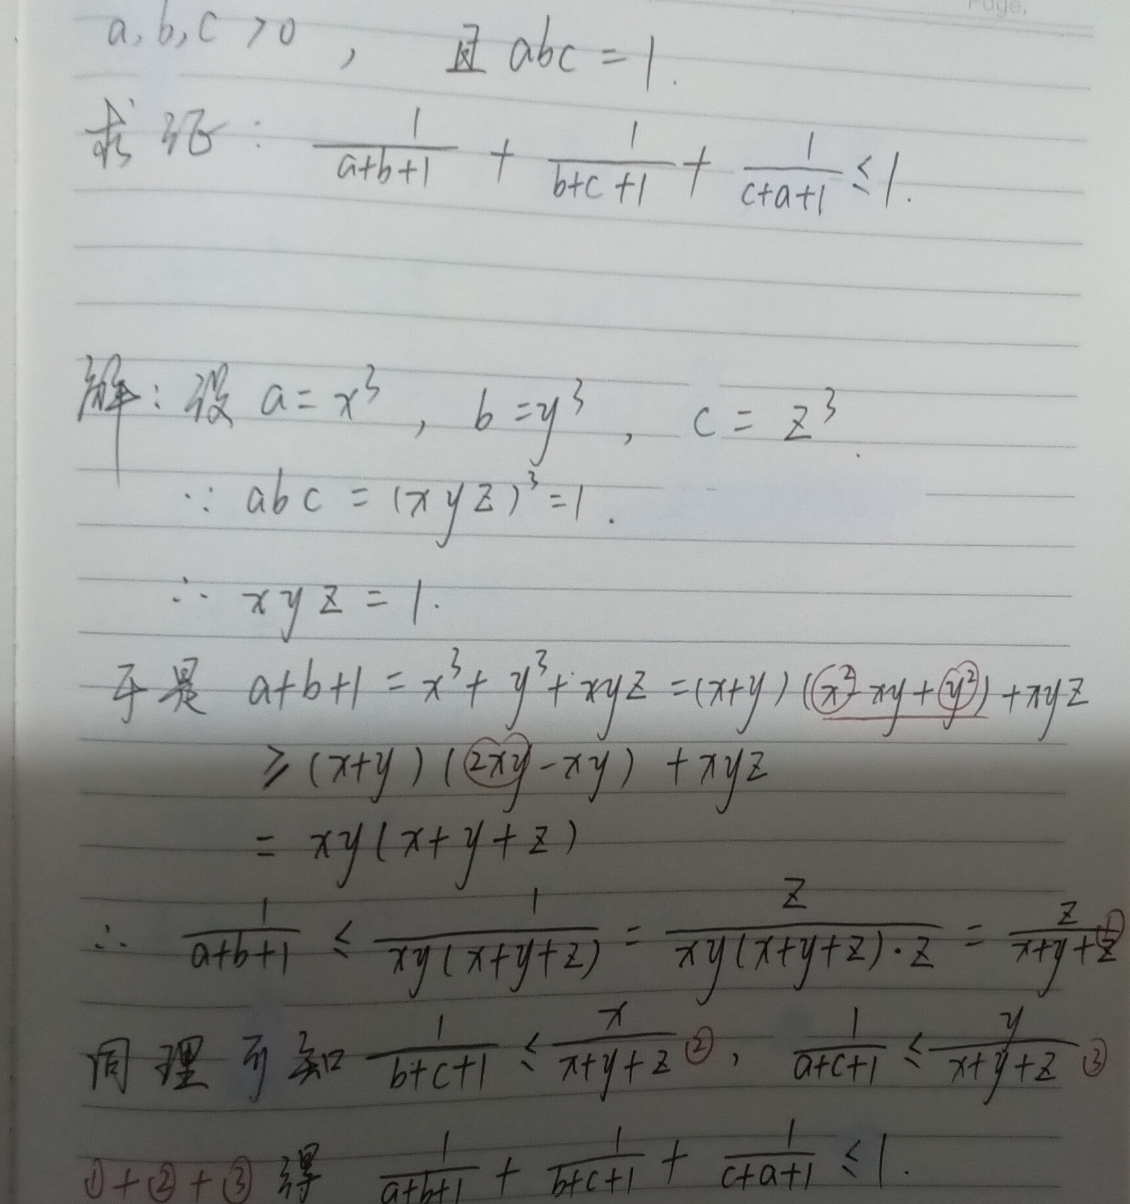 Page.
a, b, c > 0 , 且 abc = 1.
求证: 1/(a+b+1) + 1/(b+c+1) + 1/(c+a+1) ≤ 1.
解: 设 a = x³ , b = y³ , c = z³.
∵ abc = (xyz)³ = 1.
∴ xyz = 1.
于是 a+b+1 = x³ + y³ + xyz = (x+y)(x²-xy+y²) + xyz
≥ (x+y)(2xy-xy) + xyz
= xy(x+y+z)
∴ 1/(a+b+1) ≤ 1/(xy(x+y+z)) = z/(xy(x+y+z)·z) = z/(x+y+z) ①
同理可知 1/(b+c+1) ≤ x/(x+y+z) ②, 1/(a+c+1) ≤ y/(x+y+z) ③
①+②+③ 得 1/(a+b+1) + 1/(b+c+1) + 1/(c+a+1) ≤ 1.